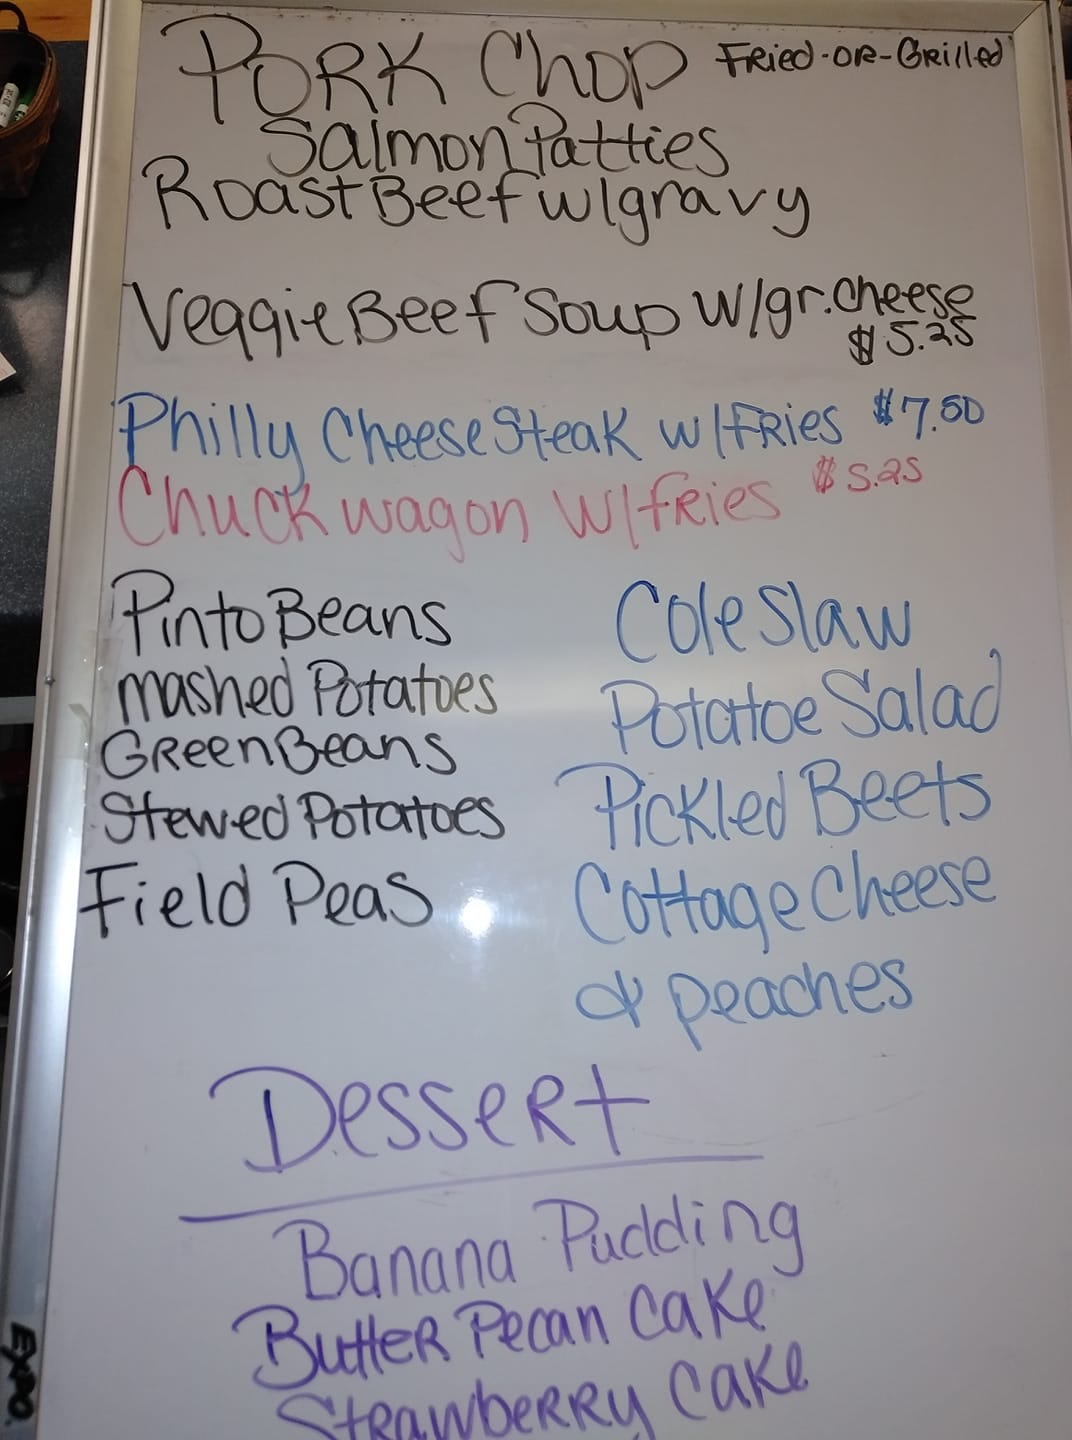 PORK Chop Fried-OR-Grilled
Salmon Patties
Roast Beef w/gravy
Veggie Beef Soup w/gr.cheese
$5.25
Philly Cheese Steak w/FRies $7.50
Chuck wagon w/fries $5.25
Pinto Beans
mashed Potatoes
Green Beans
Stewed Potatoes
Field Peas
Cole Slaw
Potatoe Salad
Pickled Beets
Cottage Cheese
& peaches
Dessert
Banana Pudding
Butter Pecan Cake
Strawberry Cake
EXPO